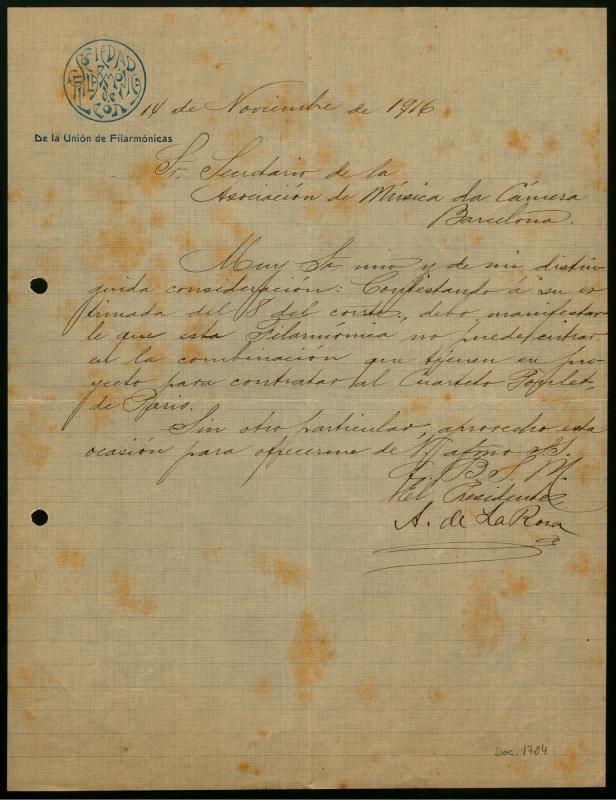 SOCIEDAD FILARMÓNICA de LEÓN
De la Unión de Filarmónicas
14 de Noviembre de 1916
Sr. Secretario de la
Asociación de Música da Cámera
Barcelona.
Muy Sr. mio y de mi distin-
guida consideración: Contestando á su es-
timada del 8 del corrte, debo manifestar-
le que esta Filarmónica no puede entrar
en la combinación que tienen en pro-
yecto para contratar al Cuarteto Poulet,
de Paris.
Sin otro particular, aprovecho esta
ocasión para ofrecerme de V. atmo s.s.
q. B. S. M.
El Presidente
A. de La Rosa
Doc. 1784